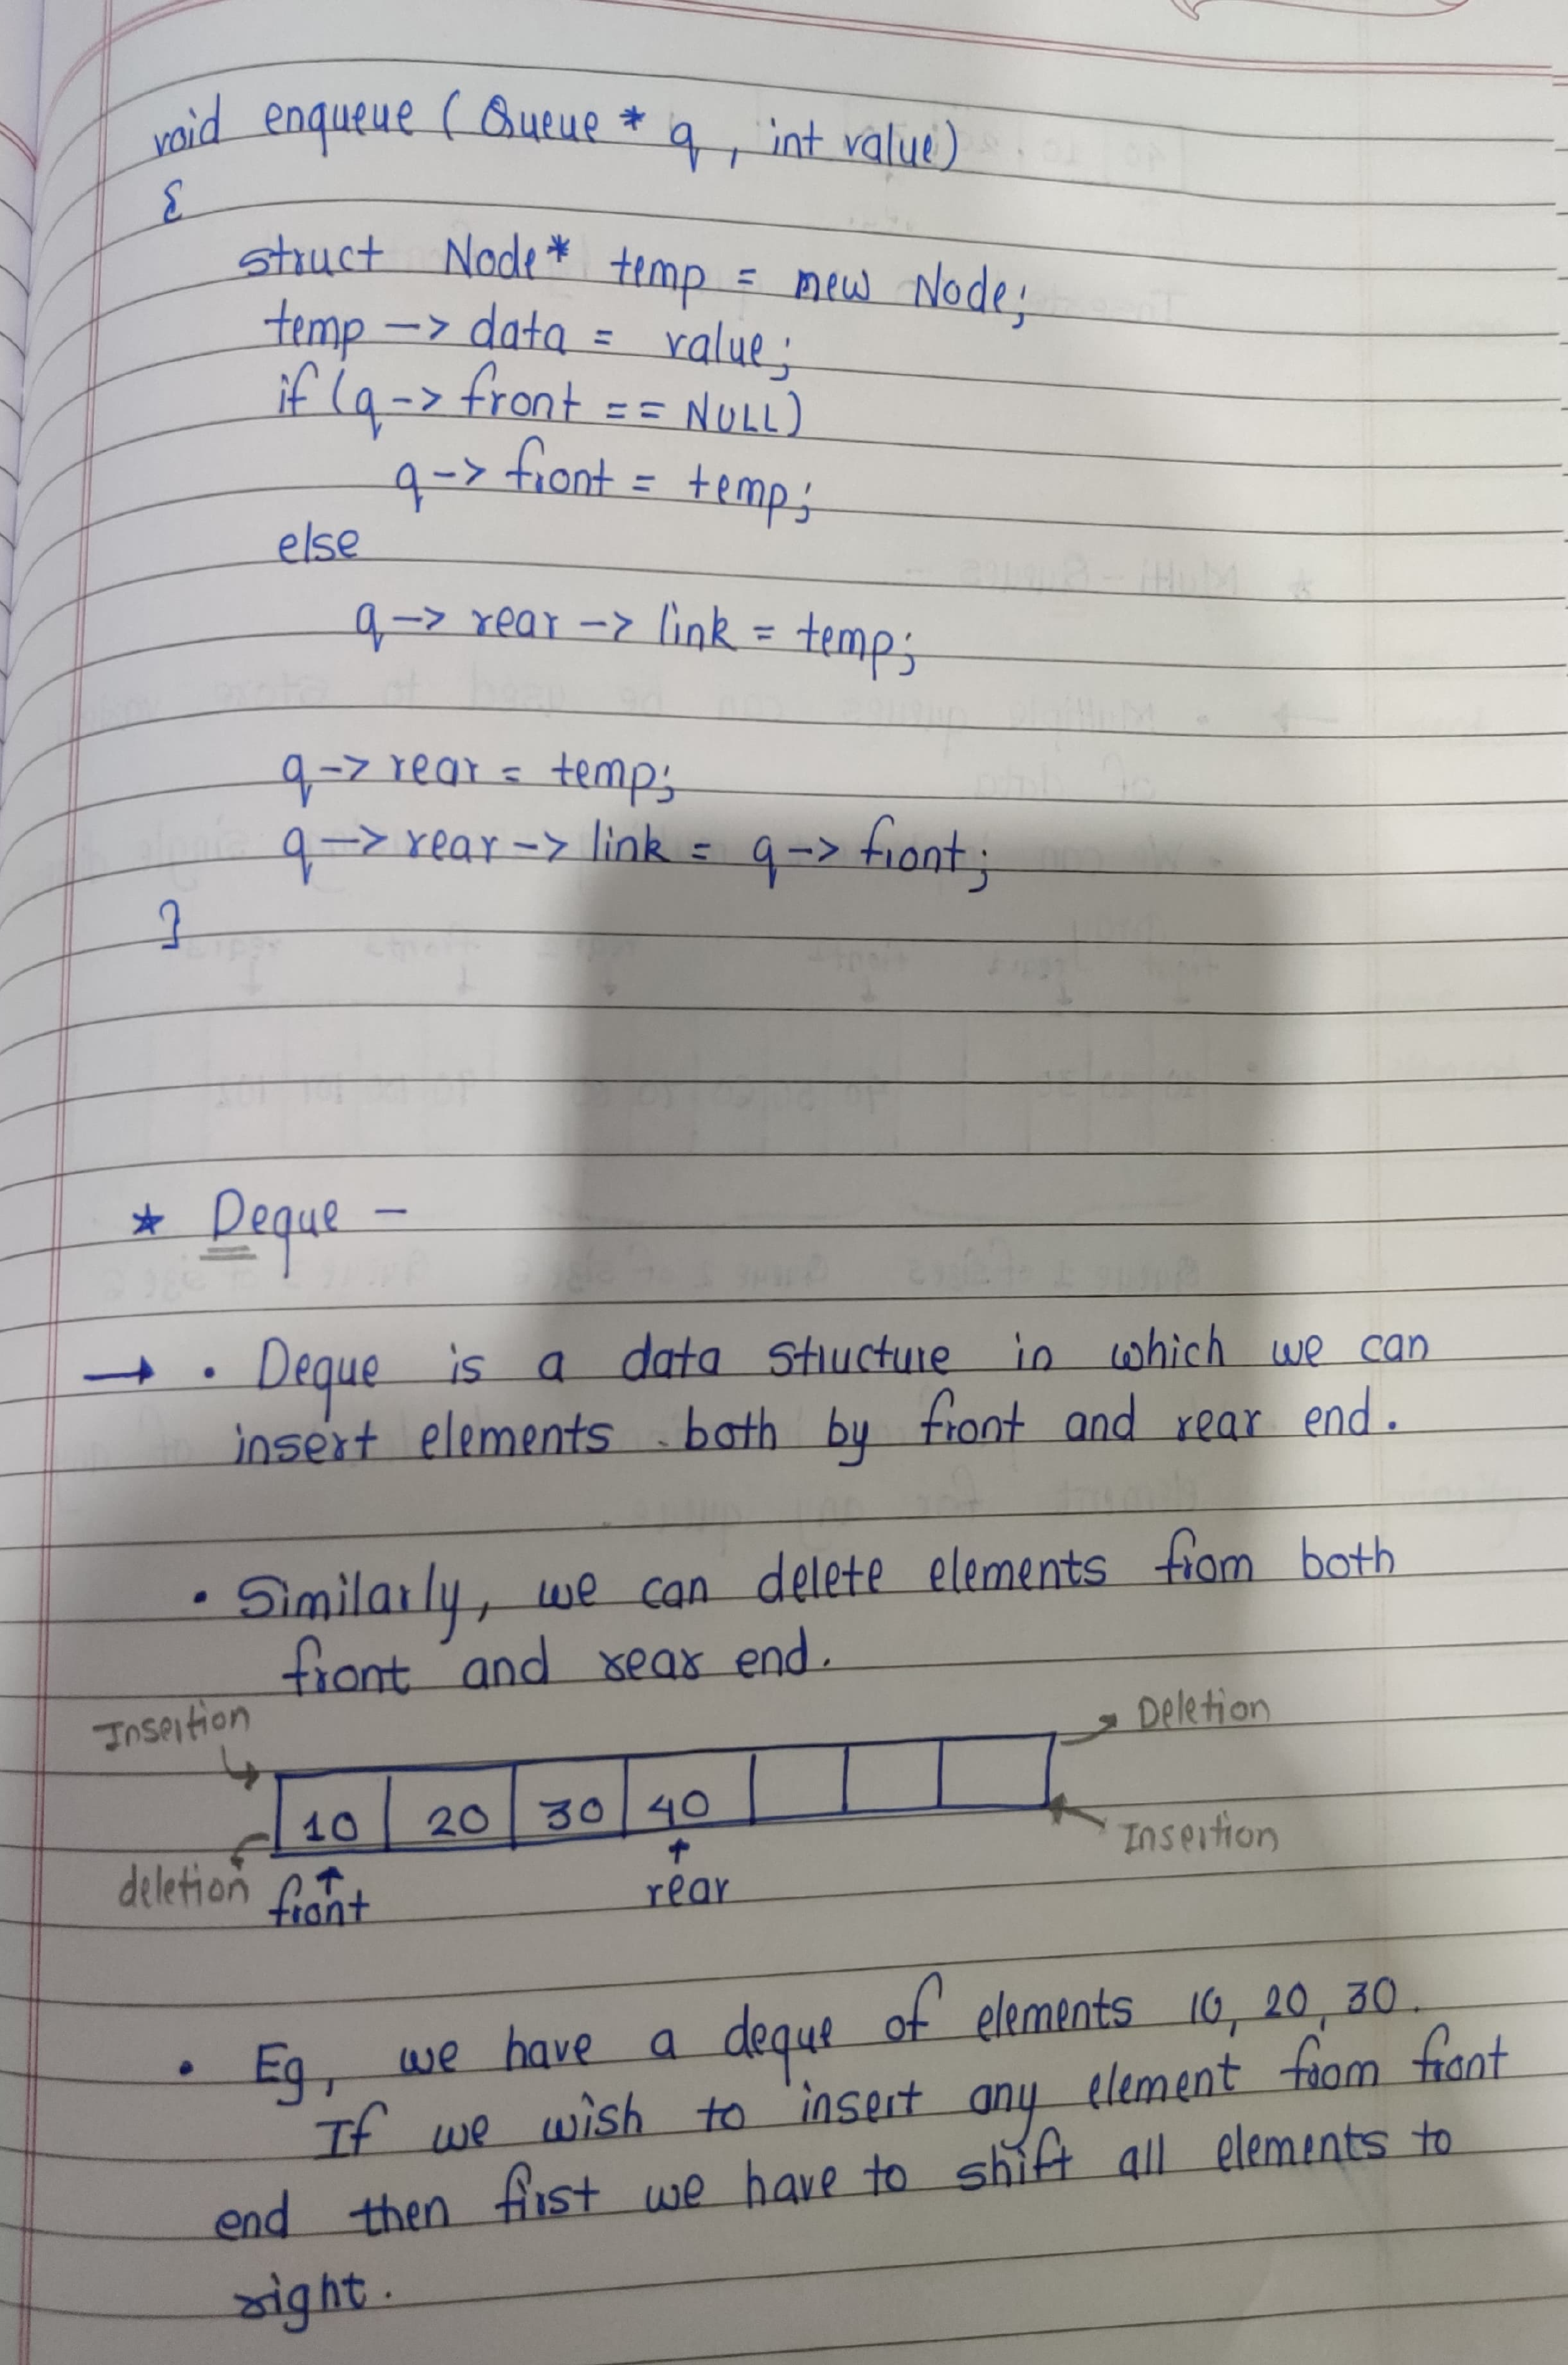 void enqueue ( Queue * q , int value)
{
struct Node* temp = new Node;
temp -> data = value;
if (q -> front == NULL)
q -> front = temp;
else
q -> rear -> link = temp;
q -> rear = temp;
q -> rear -> link = q -> front;
}
* Deque -
→ • Deque is a data structure in which we can
insert elements both by front and rear end.
• Similarly, we can delete elements from both
front and rear end.
Insertion
Deletion
10 20 30 40
Insertion
deletion
front
rear
• Eg, we have a deque of elements 10, 20, 30.
If we wish to insert any element from front
end then first we have to shift all elements to
right.